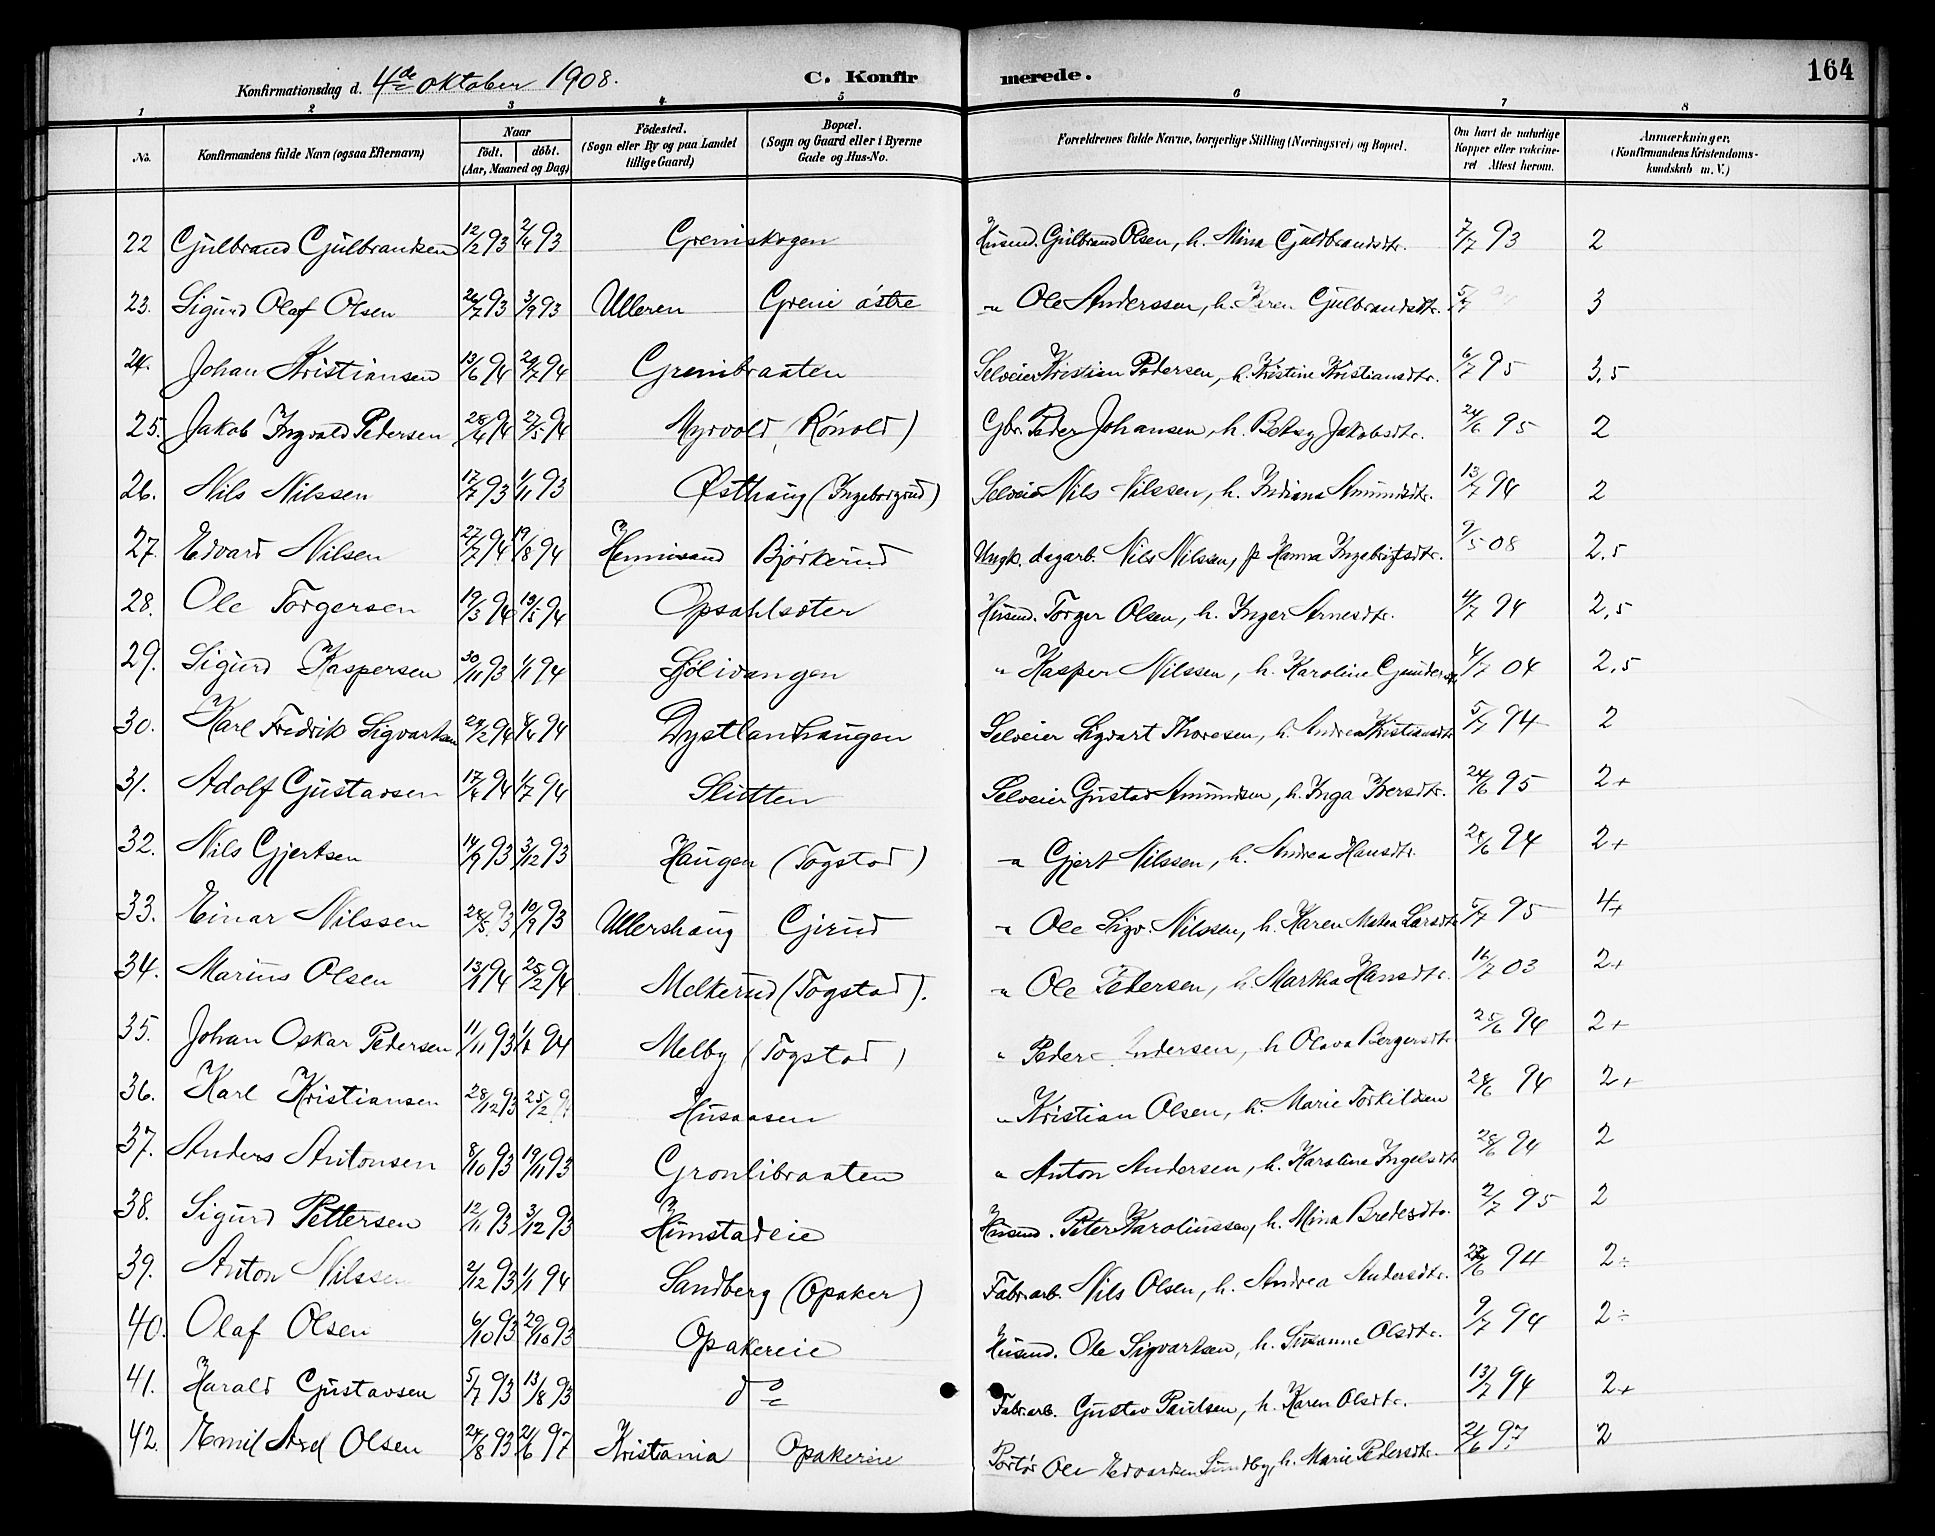 164
Konfirmationsdag d. 4de oktober 1908. C. Konfirmerede.
1 2 3 4 5 6 7 8
No. Konfirmandens fulde Navn (ogsaa Efternavn) Naar født. døbt. (Aar, Maaned og Dag) Fødested. (Sogn eller By og paa Landet tillige Gaard) Bopæl. (Sogn og Gaard eller i Byerne Gade og Hus-No. Forældrenes fulde Navne, borgerlige Stilling (Næringsvei) og Bopæl. Om havt de naturlige Kopper eller vakcineret Attest herom. Anmærkninger, (Konfirmandens Kristendomskundskab m. V.)
22 Gulbrand Gulbrandsen 12/2 93 2/4 93 Greniskogen Husmd. Gulbrand Olsen, h. Mina Guldbrandsdtr. 7/7 93 2
23. Sigurd Olaf Olsen 26/7 93 3/9 93 Ulleren Greni østre -"- Ole Anderssen, h. Karen Gulbrandsdtr. 3
24. Johan Kristiansen 13/6 94 29/7 94 Grenibraaten Selveier Kristian Pedersen, h. Kristine Kristiansdtr. 6/7 95 3,5
25. Jakob Ingvald Pedersen 28/4 94 27/5 94 Myrvold (Rónold) Gbr. Peder Johansen, h. Betsy Jakobsdtr. 24/6 95 2
26. Nils Nilssen 17/7 93 1/11 93 Østhaug (Ingeborgrud) Selveier Nils Nilssen, h. Indiana Amundsdtr. 13/7 94 2
27. Edvard Nilsen 27/7 94 19/8 94 Hernisand Bjørkerud Ungk. dagarb. Nils Nilssen, p. Hanna Ingebrigtsdtr. 9/5 08 2,5
28. Ole Torgersen 19/3 94 13/5 94 Opsahlsæter Husmd. Torger Olsen, h. Inger Arnesdtr. 4/7 94 2,5
29. Sigurd Kaspersen 30/11 93 1/1 94 Sjølivangen " Kasper Nilssen, h. Karoline Gundersdtr 4/7 04 2,5
30. Karl Fredrik Sigvartsen 24/2 94 8/4 94 Dystlandhaugen Selveier Sigvart Thoresen, h. Andrea Kristiansdtr 5/7 94 2
31. Adolf Gustavsen 17/4 94 1/7 94 Slutten Selveier Gustav Amundsen, h. Inga Iversdtr. 24/6 95 2+
32. Nils Gjertsen 14/9 93 3/12 93 Haugen (Togstad) -"- Gjert Nilssen, h. Andrea Hansdtr. 25/6 94 2+
33. Einar Nilssen 24/5 93 10/9 93 Ullershaug Gjerud -"- Ole Sigv. Nilssen, h. Karen Mathea Larsdtr 5/7 95 4+
34. Marius Olsen 13/1 94 25/2 94 Melkerud (Togstad). -"- Ole Pedersen, h. Martha Hansdtr. 16/7 03 2+
35. Johan Oskar Pedersen 11/11 93 1/1 94 Melby (Togstad) " Peder Andersen, h Olava Bergersdtr 25/6 94 2+
36. Karl Kristiansen 28/12 93 25/2 Husaasen " Kristian Olsen, h. Marie Torkildsen 28/6 94 2+
37. Anders Antonsen 8/10 93 19/11 93 Gronlibraaten " Anton Andersen, h. Karoline Ingelsdtr 28/6 94 2
38. Sigurd Pettersen 12/11 93 3/12 93 Hunstadeie Husmd. Peter Karoliussen, h. Mina Bredesdtr. 2/7 95 2
39. Anton Nilssen 2/12 93 1/1 94 Sandberg (Opaker) Fabr.arb. Nils Olsen, h. Andrea Andersdtr. 22/6 94 2÷
40. Olaf Olsen 6/10 93 29/10 93 Opakereie Husmd. Ole Sigvartsen, h. Susanne Olsdtr. 9/7 94 2÷
41. Harald Gustavsen 5/7 93 13/8 93 do Fabr.arb. Gustav Paulsen, h. Karen Olsdtr. 13/7 94 2+
42. Emil Axel Olsen 24/8 93 21/6 97 Kristania Opakereie Portør Ole Edvardsen Sundby, h. Marie Pedersdtr. 21/6 97 2